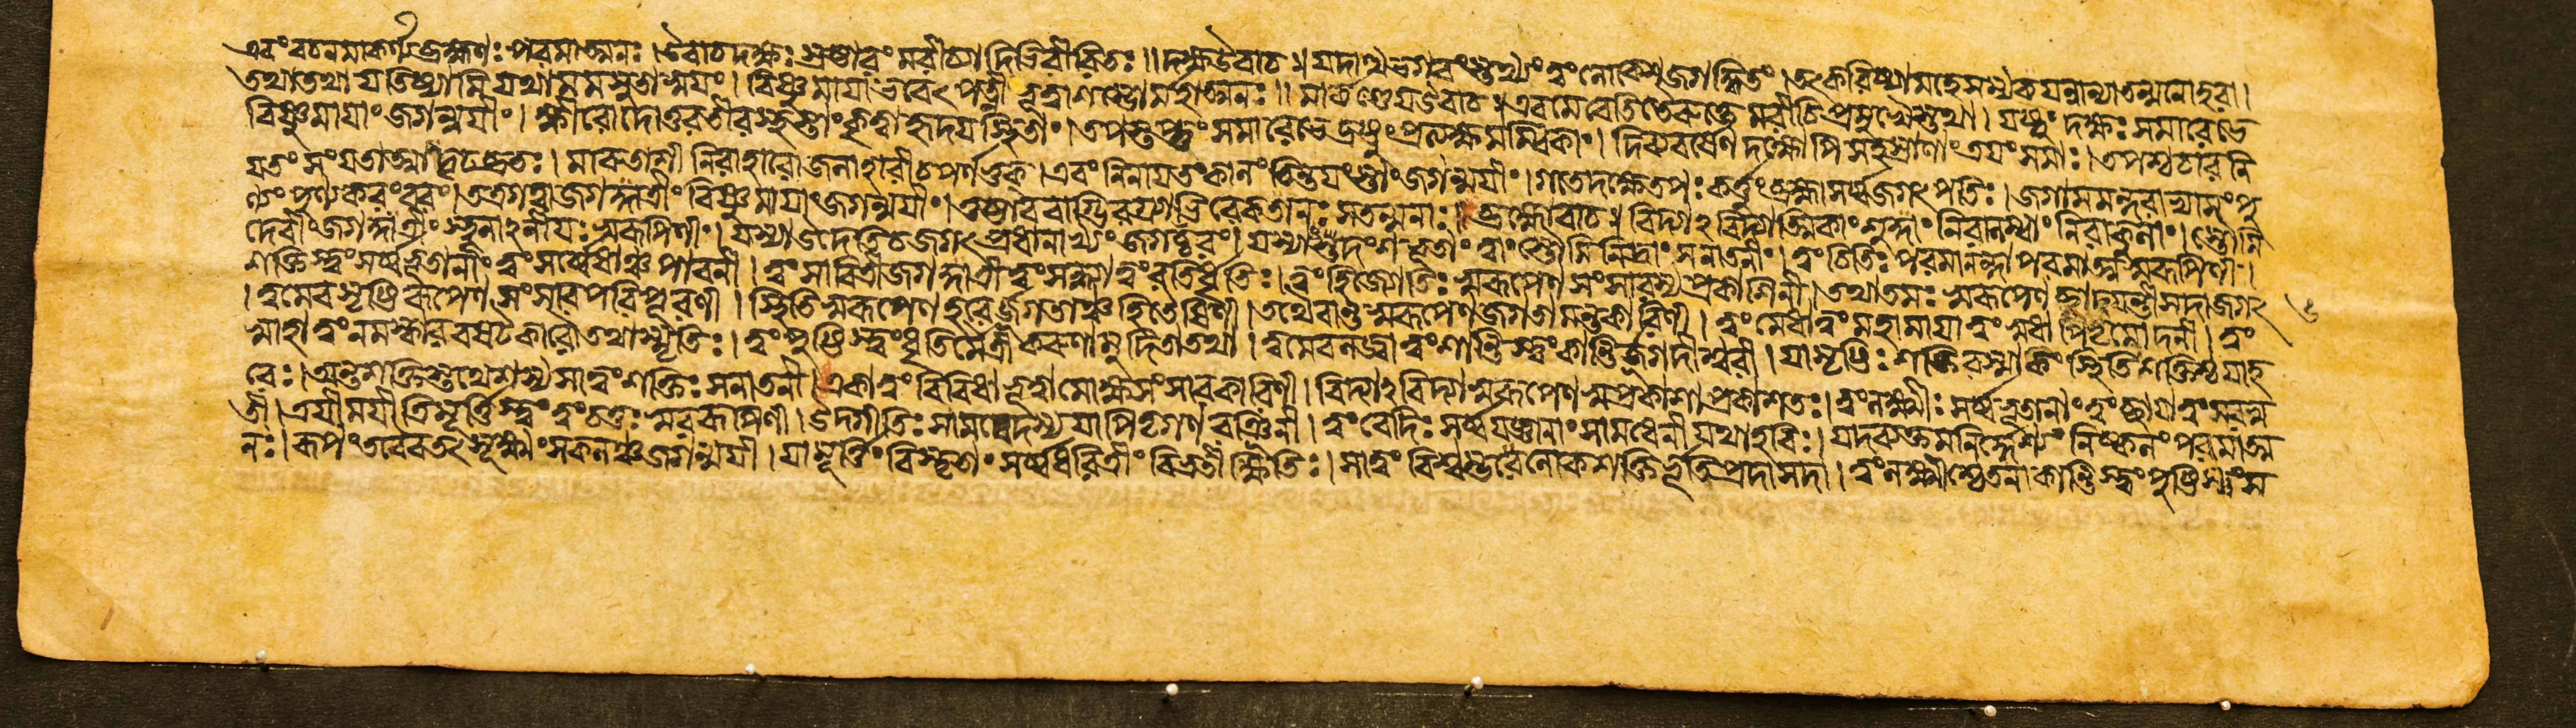 এবং বচনমাকর্ণ্য ব্রহ্মণঃ পরমাত্মনঃ । উবাচ দক্ষঃ স্রষ্টারং মরীচ্যাদিভিরীরিতঃ ॥ দক্ষ উবাচ ॥ যদাত্থ ভগবংস্তথ্যং ত্বং লোকেশ জগদ্ধিতং । তৎ করিষ্যামহে সম্যক যন্মান্যা তন্মনোহরা ।
তথা তথা যতিষ্যামি যথা মম সুতা স্বয়ং । বিষ্ণুমায়া ভবেৎ পত্নী ভূত্বা শম্ভো র্মহাত্মনঃ ॥ মার্কণ্ডেয় উবাচ ॥ এবমেবেতি তৈরুক্তে মরীচিপ্রমুখৈস্তথা । যষ্টুং দক্ষঃ সমারেভে
বিষ্ণুমায়াং জগন্ময়ীং । ক্ষীরোদোত্তরতীরস্থস্তাং কৃত্বা হৃদয়স্থিতাং । তপস্তপ্তুং সমারেভে দ্রষ্টুং প্রত্যক্ষমম্বিকাং । দিব্যবর্ষেণ দক্ষোপি সহস্রাণাং ত্রয়ং সমাঃ । তপশ্চচার নি
যতং সংযতাত্মা দৃঢ়ব্রতঃ । মারুতাশী নিরাহারো জলাহারী চ পর্ণভুক্ । এবং নিনায় তং কালং চিন্তয়ংস্তাং জগন্ময়ীং । গতে দক্ষে তপঃ কর্ত্তুং ব্রহ্মা সর্ব্বজগৎপতিঃ । জগাম মন্দরাভ্যাসং পু
ণ্যং পুণ্যকরং বরং । তত্র গত্বা জগদ্ধাত্রীং বিষ্ণুমায়াং জগন্ময়ীং । তুষ্টাব বাগ্ভিরগ্র্যাভিরেকতানঃ স তন্মনাঃ ॥ ব্রহ্মোবাচ ॥ বিদ্যাঽবিদ্যাত্মিকাং শুদ্ধাং নিরালম্বাং নিরাকুলাং । স্তৌমি
দেবীং জগদ্ধাত্রীং স্থূলাঽণীয়ঃ স্বরূপিণীং । যস্যা উদেতি চ জগৎ প্রধানাখ্যং জগৎপরং । যস্যাস্তদংশভূতাং ত্বাং স্তৌমি নিদ্রাং সনাতনীং । ত্বং চিতিঃ পরমানন্দা পরমাত্মস্বরূপিণী ।
শক্তিস্ত্বং সর্ব্বভূতানাং ত্বং সর্ব্বেষাঞ্চ পাবনী । ত্বং সাবিত্রী জগদ্ধাত্রী ত্বং সন্ধ্যা ত্বং রতির্ধৃতিঃ । ত্বং হি জ্যোতিঃ স্বরূপেণ সংসারস্য প্রকাশিনী । তথা তমঃ স্বরূপেণ ছাদয়ন্তী সদা জগৎ
। ত্বমেব সৃষ্টিরূপেণ সংসারপরিপূরণী । স্থিতিস্বরূপেণ হরের্জগতাঞ্চ হিতৈষিণী । তথৈবান্তস্বরূপেণ জগতামন্তকারিণী । ত্বং মেধা ত্বং মহামায়া ত্বং স্বধা পিতৃমোদিনী । ত্বং
স্বাহা ত্বং নমস্কারবষট্কারৌ তথা স্মৃতিঃ । ত্বং পুষ্টিস্ত্বং ধৃতির্মৈত্রী করুণা মুদিতা তথা । ত্বমেব লজ্জা ত্বং শান্তিস্ত্বং কান্তির্জগদীশ্বরী । যা সৃষ্টিঃ শক্তিরস্মাকং স্থিতিশক্তিশ্চ যা হ
রেঃ । অন্তশক্তিস্তথেশস্য সা ত্বং শক্তিঃ সনাতনী । একা ত্বং বিবিধা ভূত্বা মোক্ষসংসারকারিণী । বিদ্যাঽবিদ্যাস্বরূপেণ স্বপ্রকাশাপ্রকাশতঃ । ত্বং লক্ষ্মীঃ সর্ব্বভূতানাং ত্বং ছায়া ত্বং সরস্ব
তী । ত্রয়ীময়ী ত্রিমূর্ত্তিস্ত্বং ত্বং স্বরূপিণী । উদ্গীতিঃ সামবেদস্য যা পিতৃগণরঞ্জিনী । ত্বং বেদিঃ সর্ব্বযজ্ঞানাং সামধেনী যথা হবিঃ । যদব্যক্তমনির্দ্দেশ্যং নিষ্কলং পরমাত্ম
নঃ । রূপং তথৈব তৎ সূক্ষ্মং সকলঞ্চ জগন্ময়ী । যা মূর্ত্তিং বিস্তৃতাং সর্ব্বধরিত্রীং বিভ্রতী ক্ষিতিঃ । সা ত্বং বিশ্বম্ভরে লোকশক্তিভূতিপ্রদা সদা । ত্বং লক্ষ্মীশ্চেতনা কান্তিস্ত্বং পুষ্টিস্ত্বং স